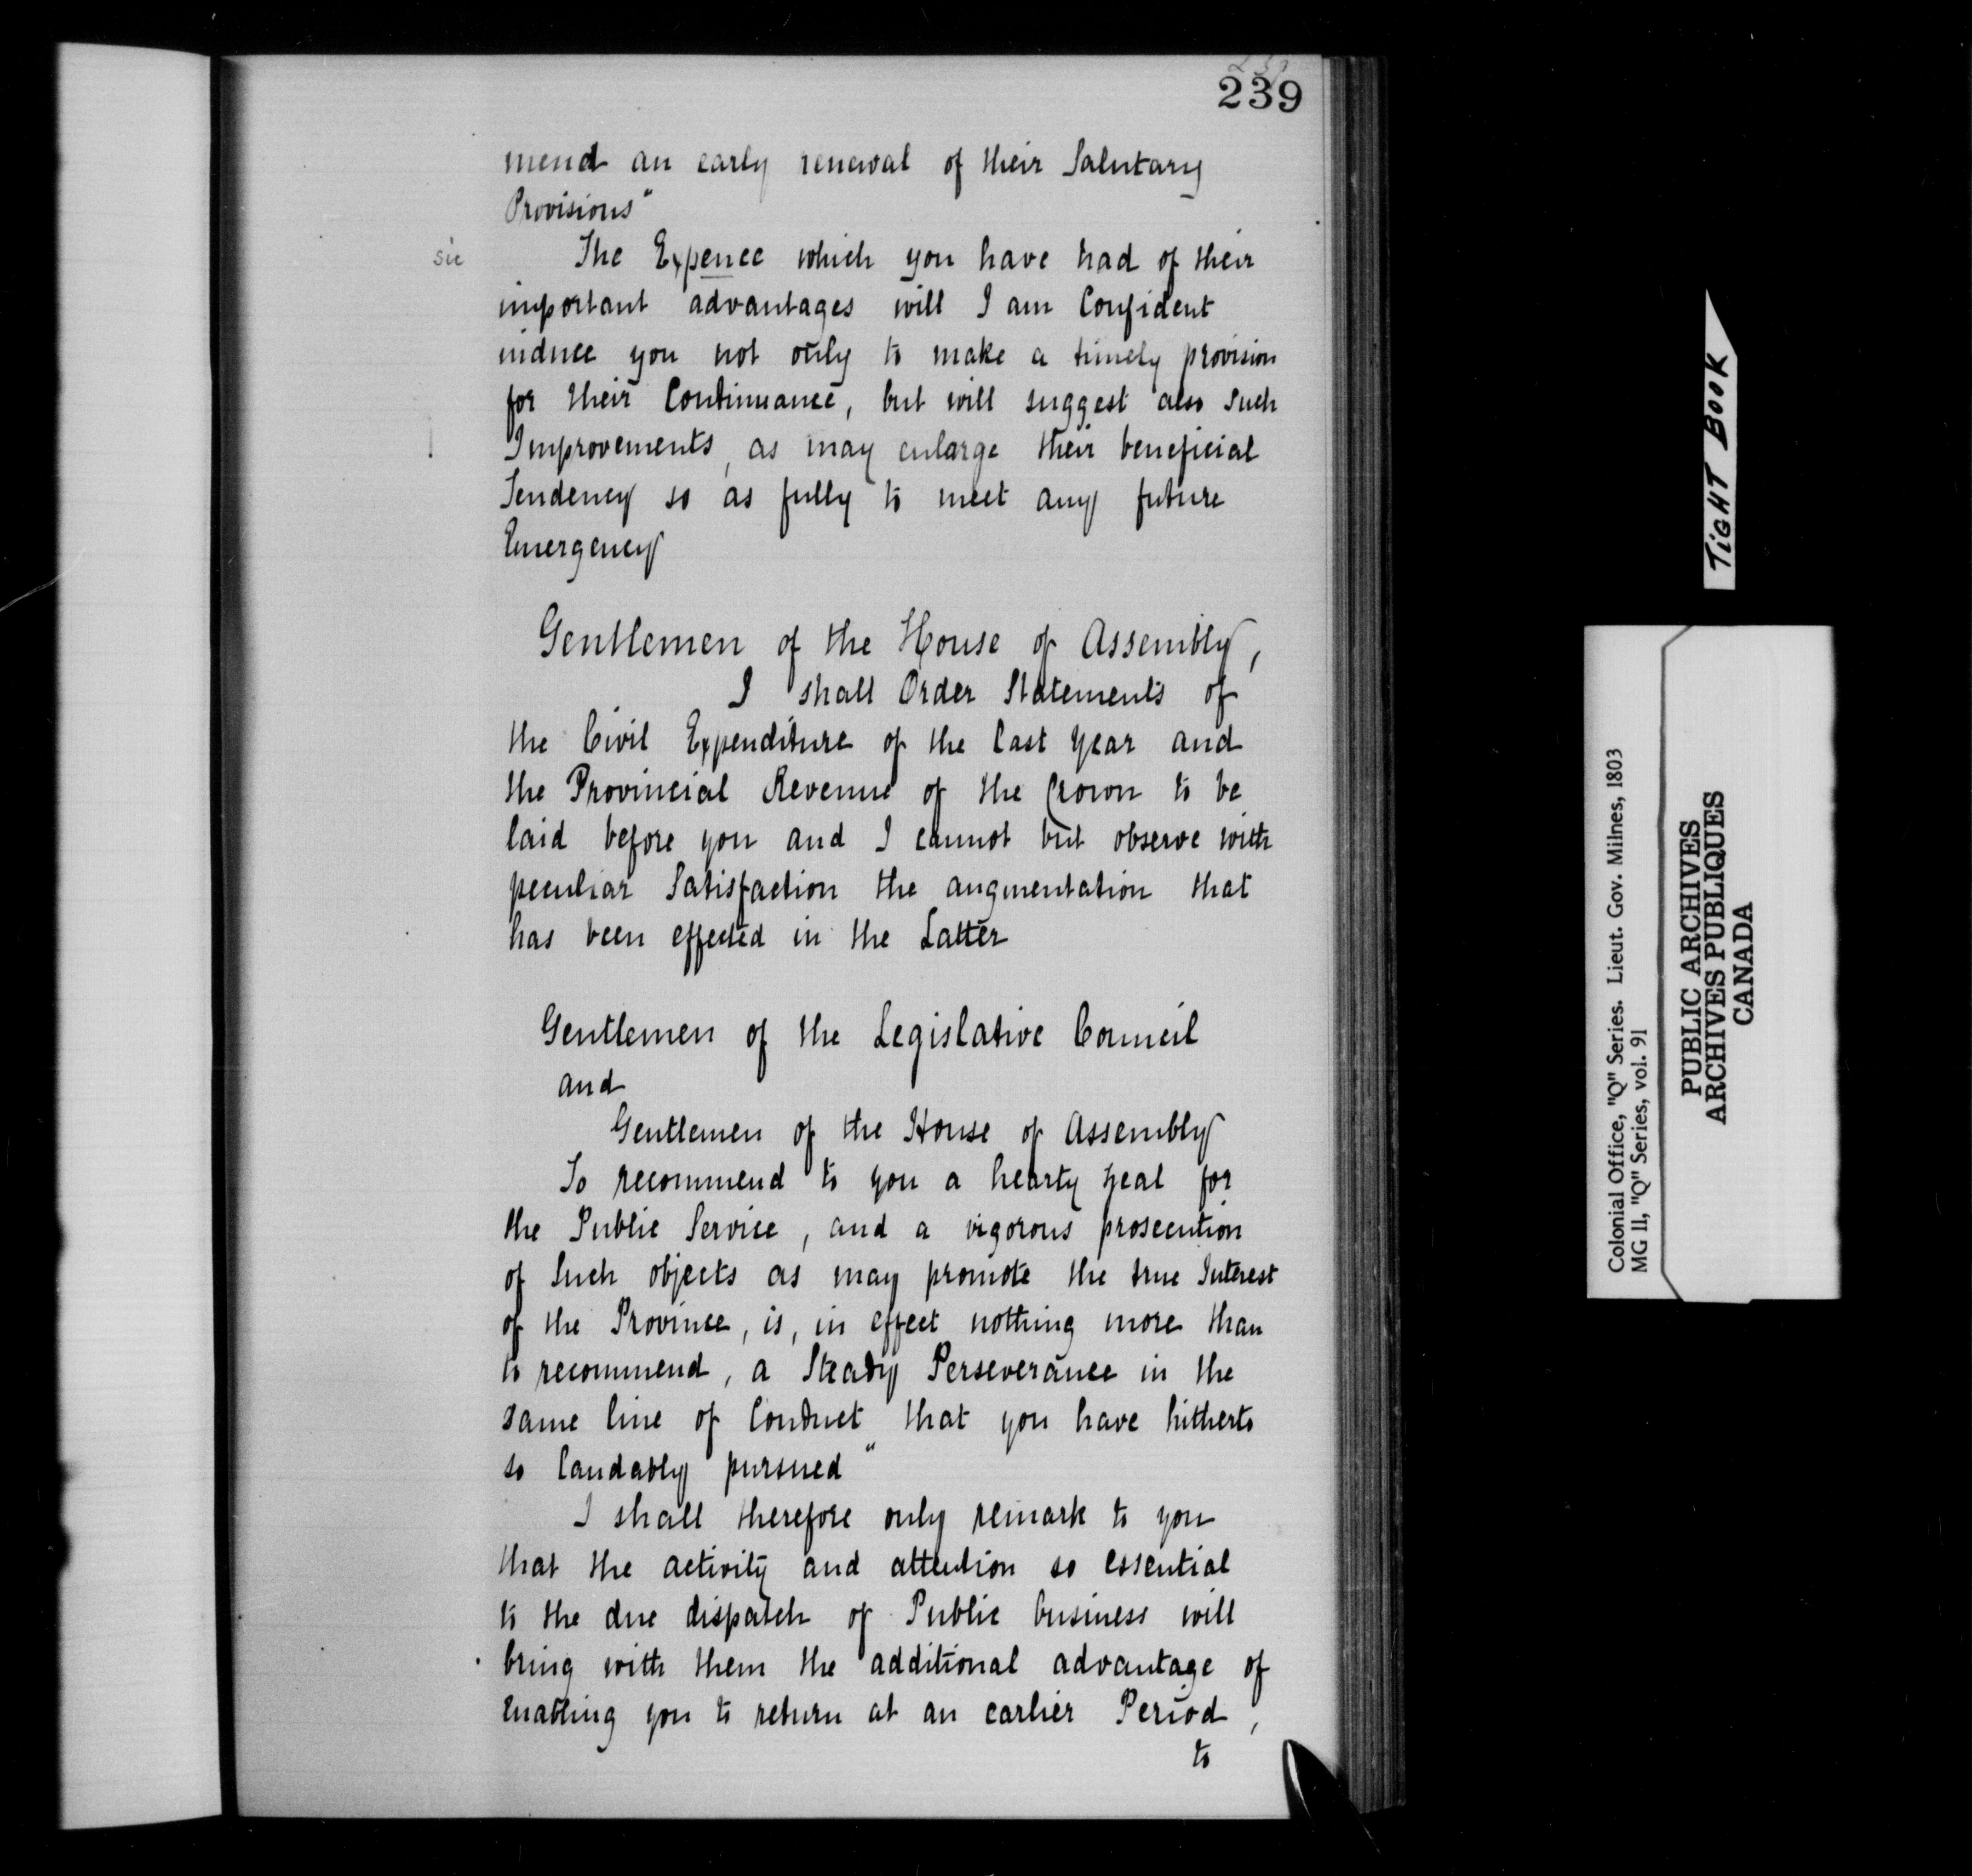 239
mend an early renewal of their Salutary
Provisions"
sic
The Expence which you have had of their
important advantages will I am Confident
induce you not only to make a timely provision
for their Continuance, but will suggest also Such
Improvements, as may enlarge their beneficial
Tendency so as fully to meet any future
Emergency
Gentlemen of the House of Assembly,
I shall Order Statements of
the Civil Expenditure of the last Year and
the Provincial Revenue of the Crown to be
laid before you and I cannot but observe with
peculiar Satisfaction the augmentation that
has been effected in the Latter
Gentlemen of the Legislative Council
and
Gentlemen of the House of Assembly
To recommend to you a hearty zeal for
the Public Service, and a vigorous prosecution
of Such objects as may promote the true Interest
of the Province, is, in effect nothing more than
to recommend, a Steady Perseverance in the
same line of Conduct that you have hitherto
so laudably pursued"
I shall therefore only remark to you
that the activity and attention so essential
to the due dispatch of Public business will
bring with them the additional advantage of
enabling you to return at an earlier Period,
to
TIGHT BOOK
Colonial Office, "Q" Series. Lieut. Gov. Milnes, 1803
MG 11, "Q" Series, vol. 91
PUBLIC ARCHIVES
ARCHIVES PUBLIQUES
CANADA